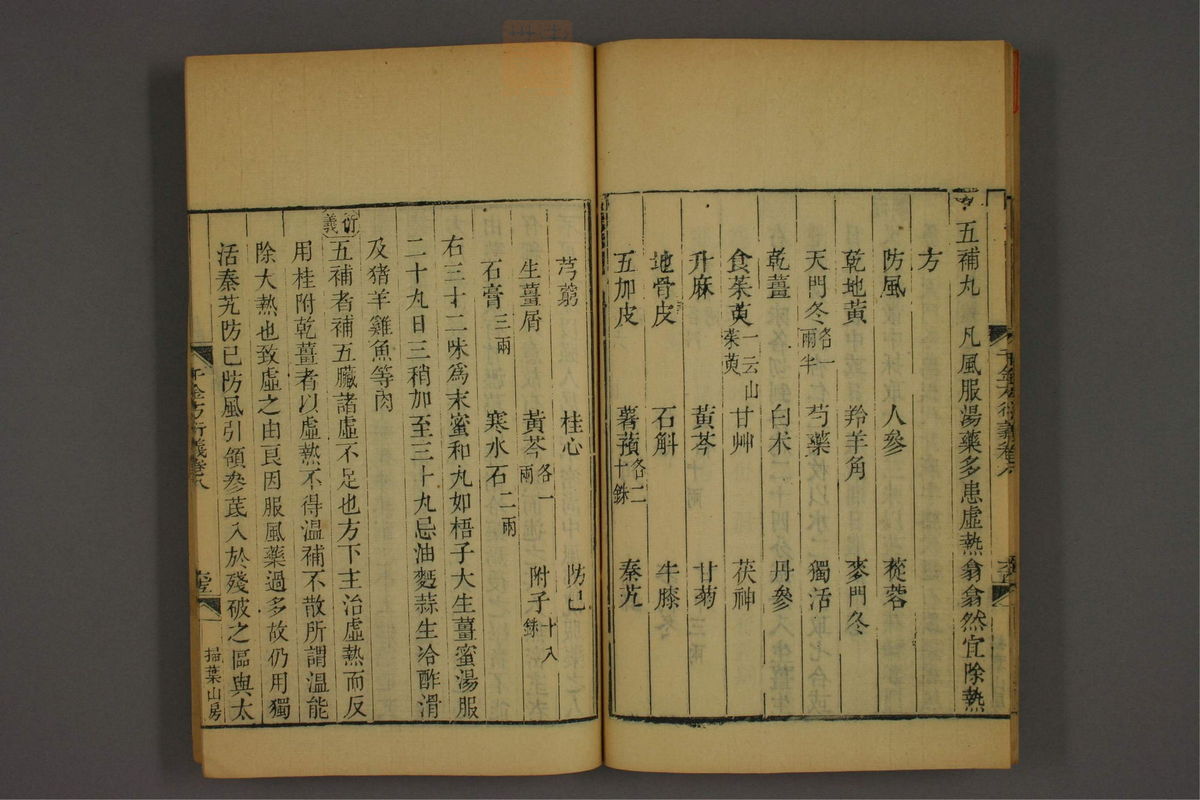 五補丸 凡風服湯藥多患虛熱翕翕然宜除熱
方
防風 人參 蓯蓉
乾地黃 羚羊角 麥門冬
天門冬各一兩半 芍藥 獨活
乾薑 白朮 丹參
食茱萸一云山茱萸 甘艸 茯神
升麻 黃芩 甘菊
地骨皮 石斛 牛膝
五加皮 薯蕷各二十銖 秦艽
芎藭 桂心 防已
生薑屑 黃芩各一兩 附子十八銖
石膏三兩 寒水石二兩
右三十二味為末蜜和丸如梧子大生薑蜜湯服
二十九日三稍加至三十丸忌油麪蒜生冷酢滑
及猪羊雞魚等肉
衍義
五補者補五臟諸虛不足也方下主治虛熱而反
用桂附乾薑者以虛熱不得溫補不散所謂溫能
除大熱也致虛之由良因服風藥過多故仍用獨
活秦艽防已防風引領參芪入於殘破之區與太
千金方衍義卷八
掃葉山房
千金方衍義卷八